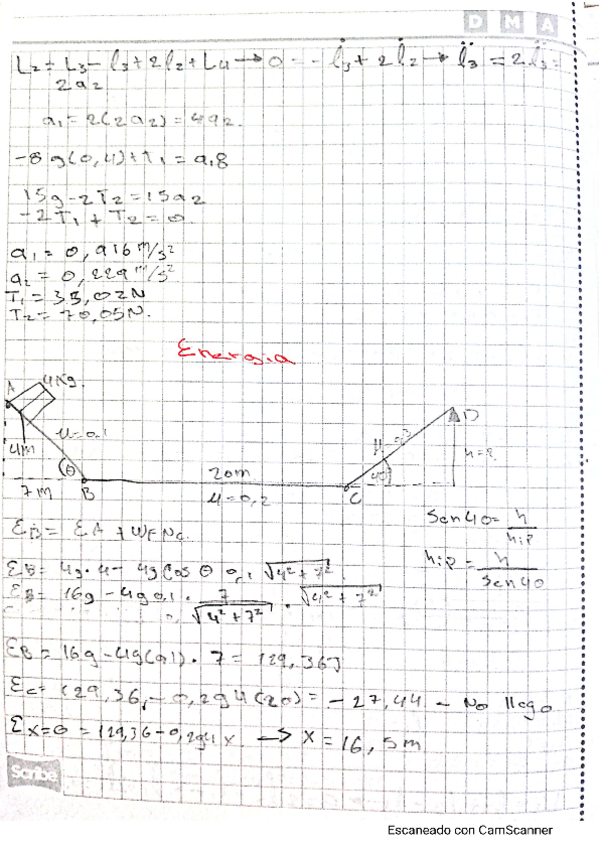 D M A
L₂ = L₃ - l₃ + 2l₂ + L₄ → 0 = - l̈₃ + 2l̈₂ → l̈₃ = 2l̈₃ =
2a₂
a₁ = 2(2a₂) = 4a₂.
-8g(0,4) + T₁ = a₁8
15g - 2T₂ = 15a₂
-2T₁ + T₂ = 0
a₁ = 0,916 m/s²
a₂ = 0,229 m/s²
T₁ = 35,02N
T₂ = 70,05N.
Energia
A
4Kg.
D
μ=0,1
μ=0,3
4m
θ
20m
40°
h=?
7m
B
μ=0,2
C
Sen40 = h/hip
EB = EA + WFNC
hip = h/Sen40
EB = 4g·4 - 4gCosθ 0,1 √(4²+7²)
EB = 16g - 4g0,1 · 7/√(4²+7²) · √(4²+7²)
EB = 16g - 4g(0,1) · 7 = 129,36J
Ec = 129,36 - 0,2g4(20) = -27,44 - No llego
Ex = 0 = 129,36 - 0,2g4x → x = 16,5m
Scribe
Escaneado con CamScanner